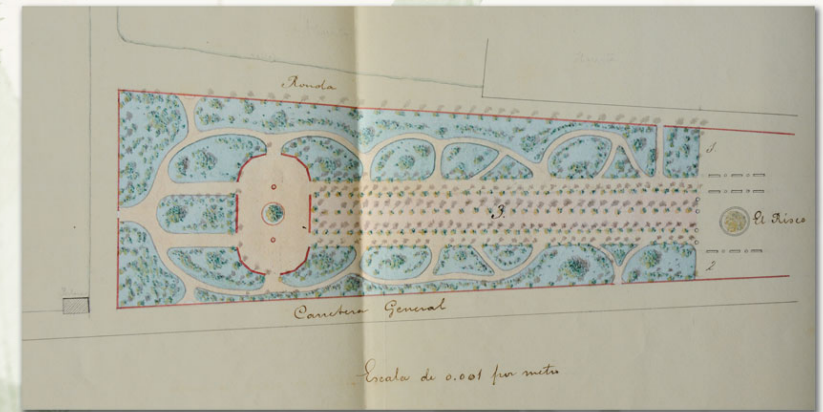 Ronda
1
3
El Risco
2
Carretera General
Escala de 0.001 por metro